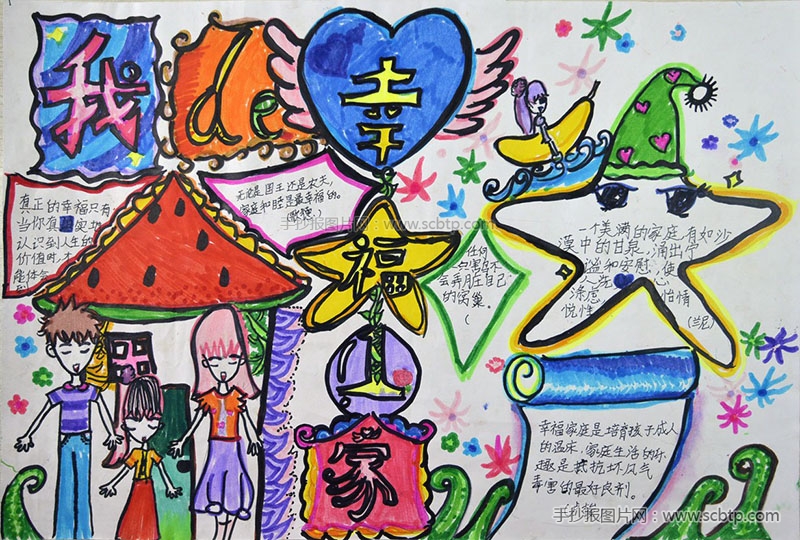 我 de 幸
福
家
真正的幸福只有,
当你真实地
认识到人生的
价值时,才
能体会
无论是国王还是农夫,
家庭和睦是最幸福的。
(歌德)
手抄报图片网:www.scbtp.com
任何
一只鸟
会弄脏自己
的窝巢。
一个美满的家庭,有如沙
漠中的甘泉,涌出宁
谧和安慰,使
人洗心
涤虑, 怡情
悦性 (兰尼)
幸福家庭是培育孩子成人
的温床,家庭生活的乐
趣是抵抗坏风气
毒害的最好良剂。
手抄报图片网:www.scbtp.com